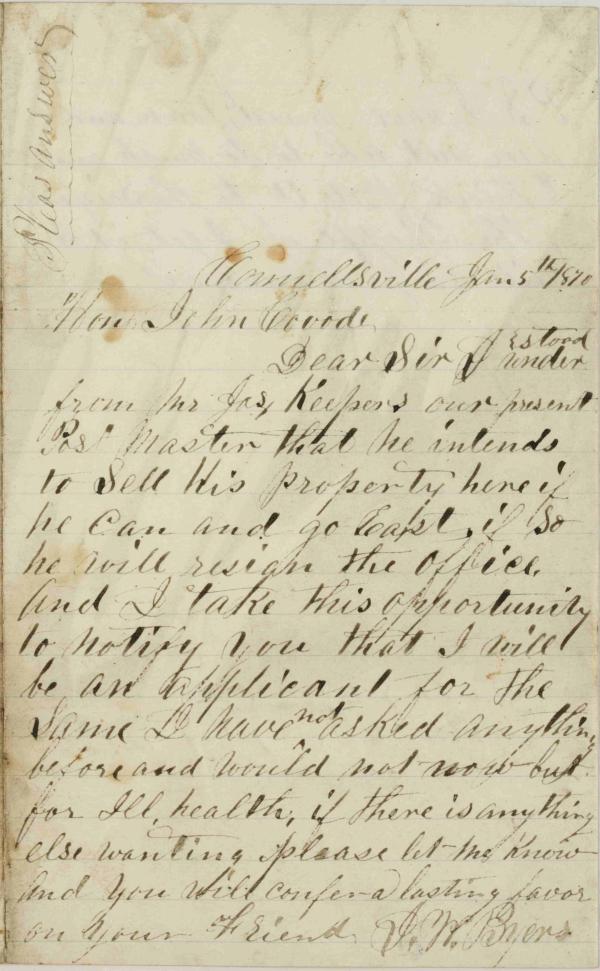 Pleas answer
Connellsville Jan 5th/1870
Hon John Covode
Dear Sir I under stood
from Mr Jos, Keepers our present
Post Master that he intends
to Sell his property here if
he can and go East, if So
he will resign the office.
And I take this opportunity
to notify you that I will
be an applicant for the
Same I have not asked anything
before and would not now but
for Ill, health, if there is anything
else wanting please let me know
And you will confer a lasting favor
on your Friend J. W. Byers